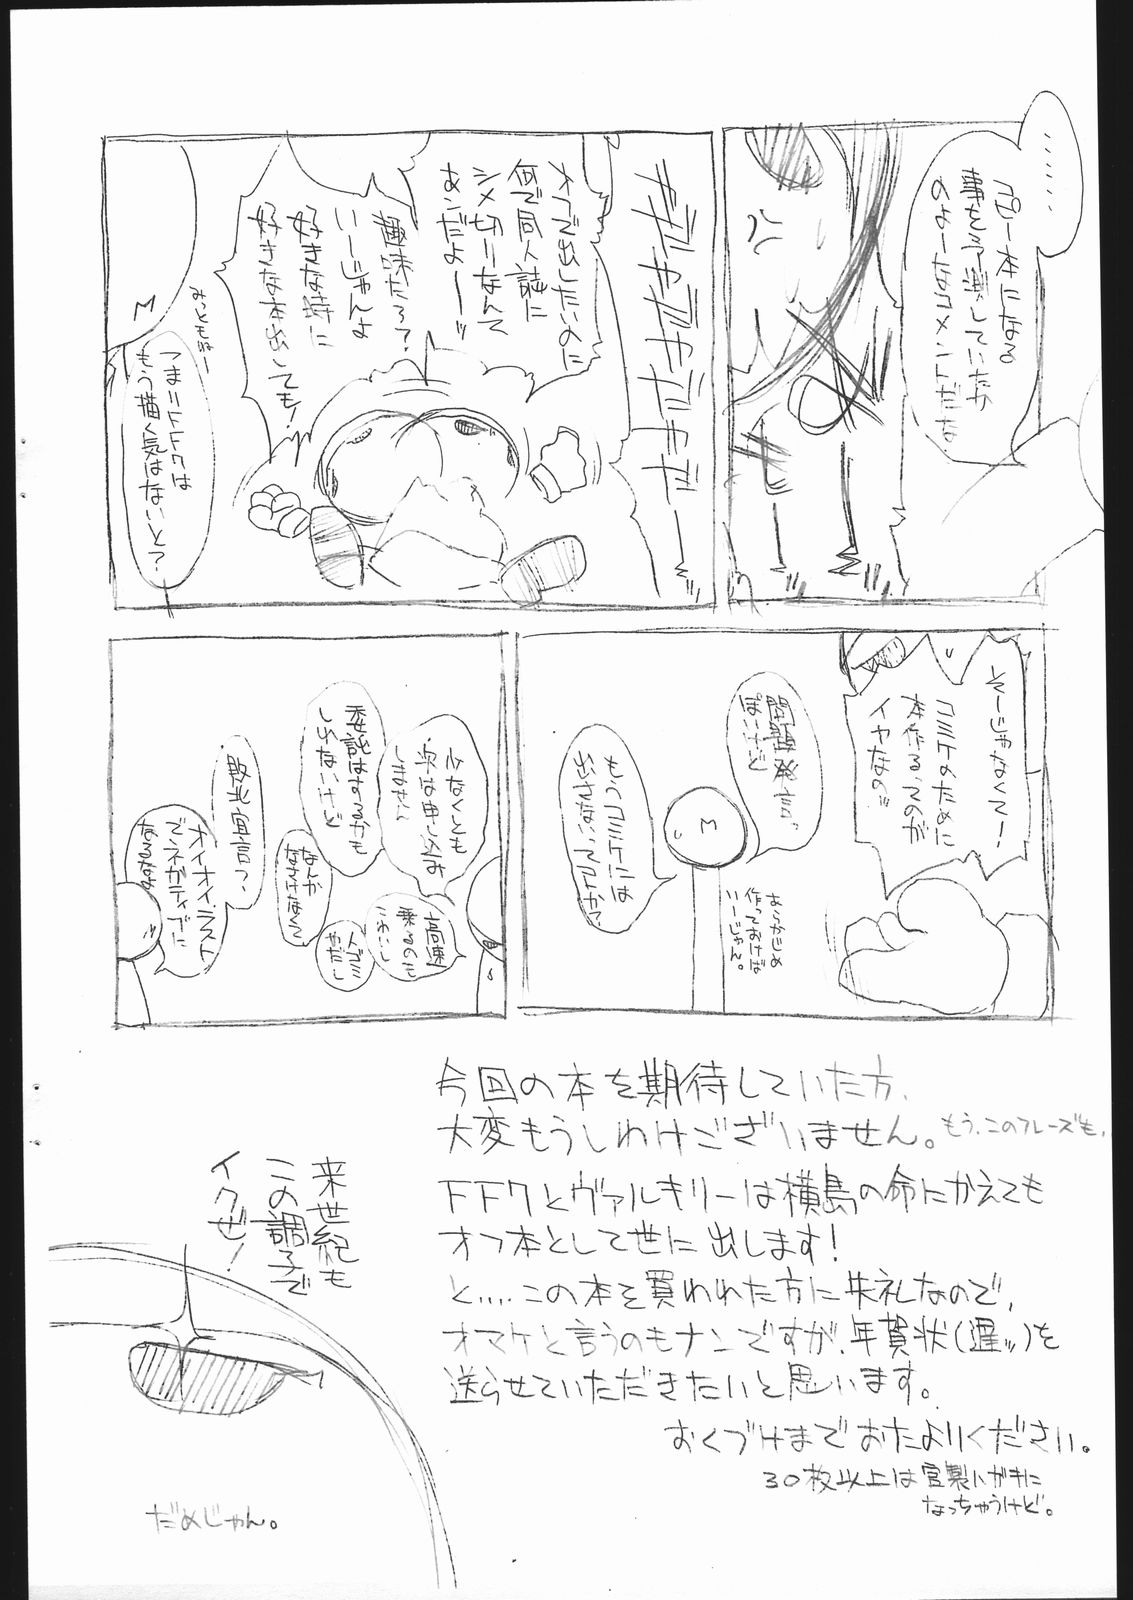 ……
コピー本になる
事を予測していたか
のよーなコメントだな
オフで出したいのに
何で同人誌に
シメ切りなんて
あンだよーーッ
趣味だろ?
いーじゃんよ
好きな時に
好きな本出しても!
みっともねー
つまりFFクは
もう描く気はないと?
そーじゃなくてー!
コミケのために
本作る、ってのが
イヤなの!!
問題発言っ
ぽいけど
もうコミケには
出さない、ってトトか?
あらかじめ
作っておけば
いーじゃん。
少なくとも
次は申し込み
しません
委託はするかも
しれないけど
高速
乗るのも
こわいし
人ゴミ
やだし
なんか
なさけなくて
敗北宣言?
オイオイ、ラスト
でネガティブに
なるなよ
今回の本を期待していた方、
大変もうしわけございません。もう、このフレーズも、
FFクとヴァルキリーは横島の命にかえても
オフ本として世に出します!
と‥‥この本を買われた方に失礼なので、
オマケと言うのもナンですが、年賀状(遅ッ)を
送らせていただきたいと思います。
おくづけまでおたよりください。
30枚以上は官製ハガキに
なっちゃうけど。
来世紀も
この調子で
イクぜ!
だめじゃん。